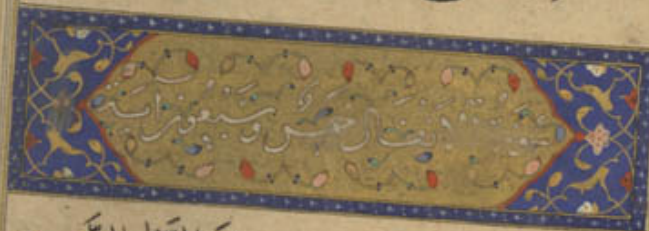 سورة الانفال خمس وسبعون آية